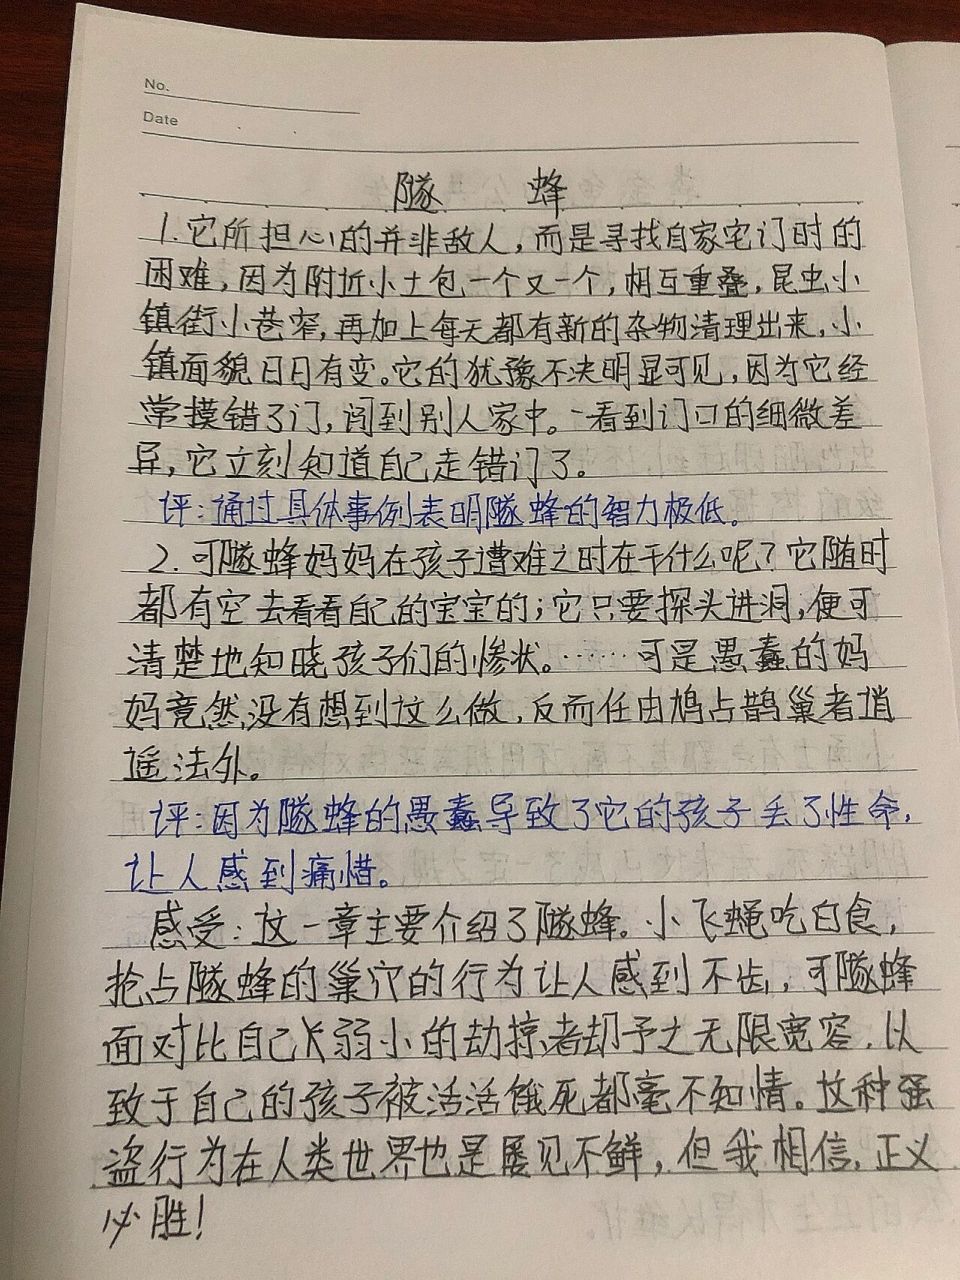 No.
Date
隧 蜂
1.它所担心的并非敌人，而是寻找自家宅门时的
困难，因为附近小土包一个又一个，相互重叠，昆虫小
镇街小巷窄，再加上每天都有新的杂物清理出来，小
镇面貌日日有变。它的犹豫不决明显可见，因为它经
常摸错了门，闯到别人家中。一看到门口的细微差
异，它立刻知道自己走错门了。
评：通过具体事例表明隧蜂的智力极低。
2.可隧蜂妈妈在孩子遭难之时在干什么呢？它随时
都有空去看看自己的宝宝的；它只要探头进洞，便可
清楚地知晓孩子们的惨状。……可是愚蠢的妈
妈竟然没有想到这么做，反而任由鸠占鹊巢者逍
遥法外。
评：因为隧蜂的愚蠢导致了它的孩子丢了性命，
让人感到痛惜。
感受：这一章主要介绍了隧蜂。小飞蝇吃白食，
抢占隧蜂的巢穴的行为让人感到不齿，可隧蜂
面对比自己弱小的劫掠者却予之无限宽容，以
致于自己的孩子被活活饿死都毫不知情。这种强
盗行为在人类世界也是屡见不鲜，但我相信，正义
必胜！